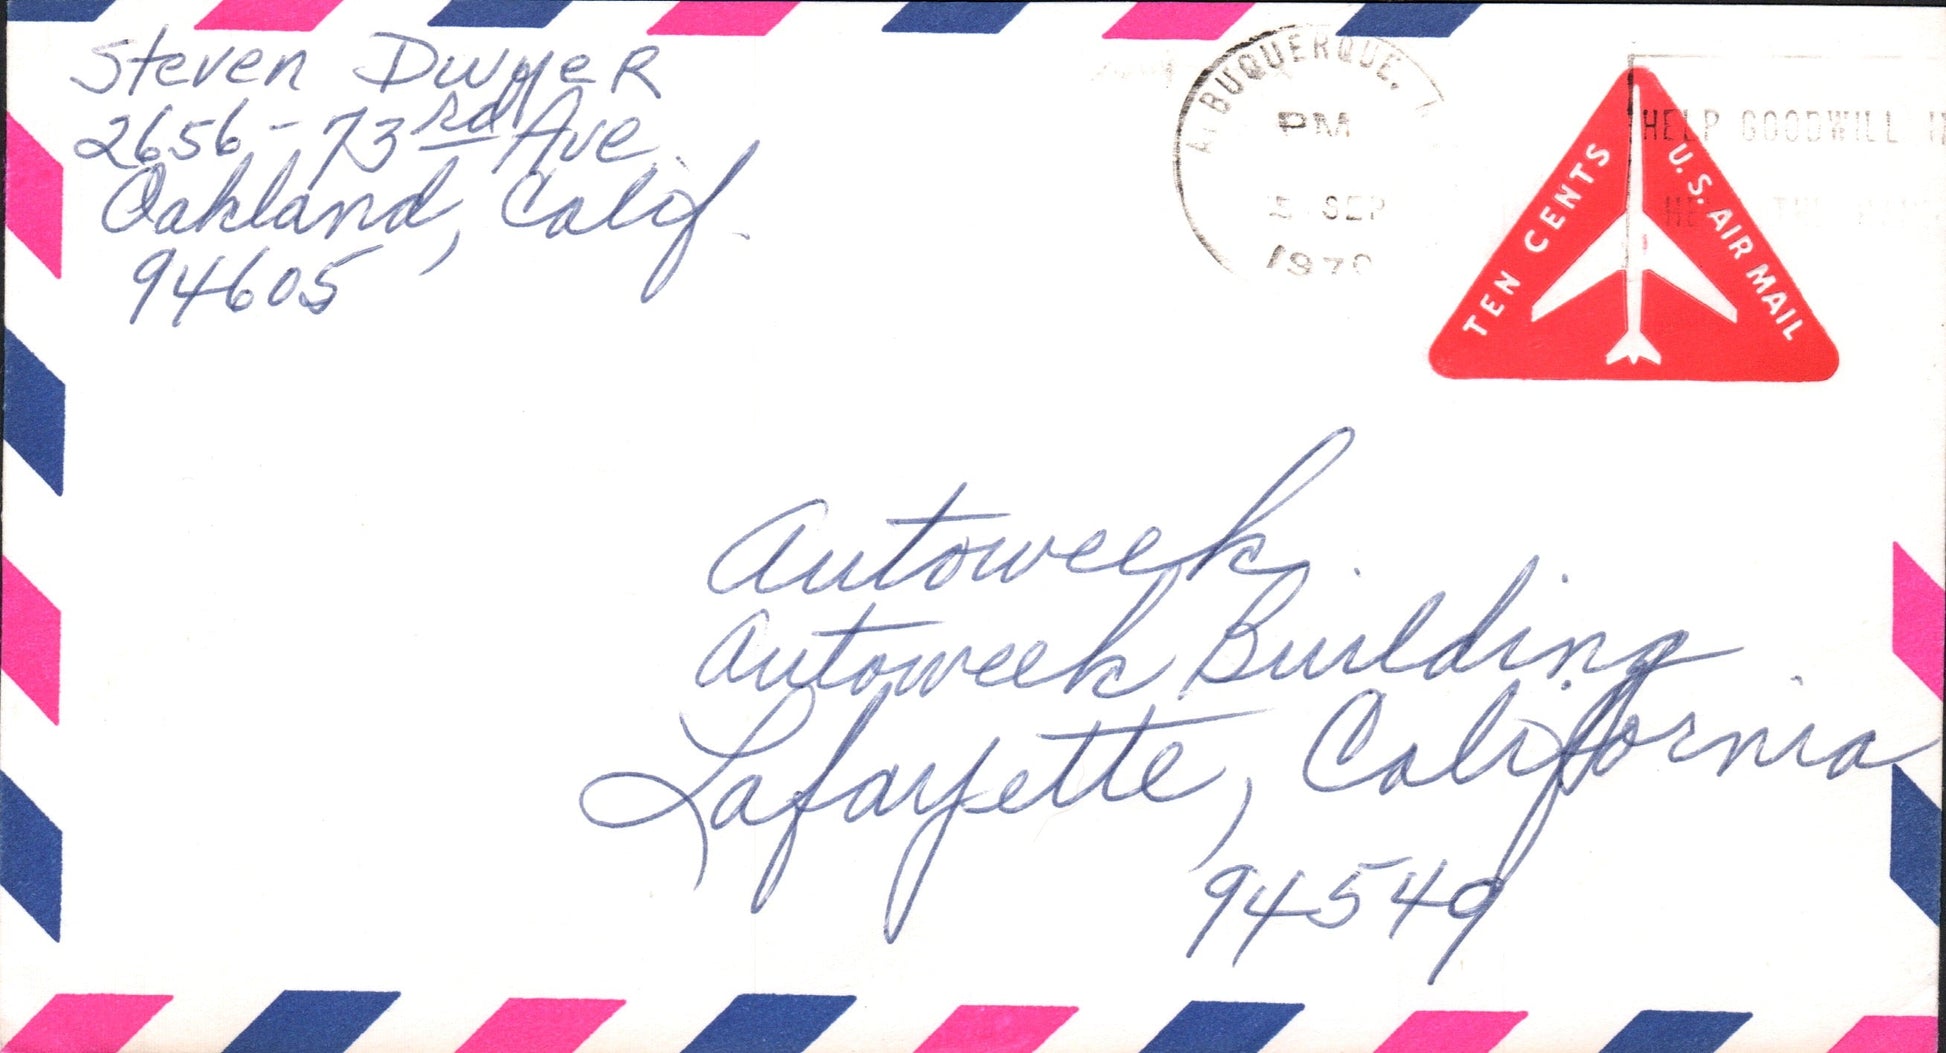 Steven Dwyer
2656 - 73rd Ave.
Oakland, Calif.
94605
ALBUQUERQUE,
PM
SEP
197
HELP GOODWILL
TEN CENTS
U.S. AIR MAIL
Autoweek
Autoweek Building
Lafayette, California
94549